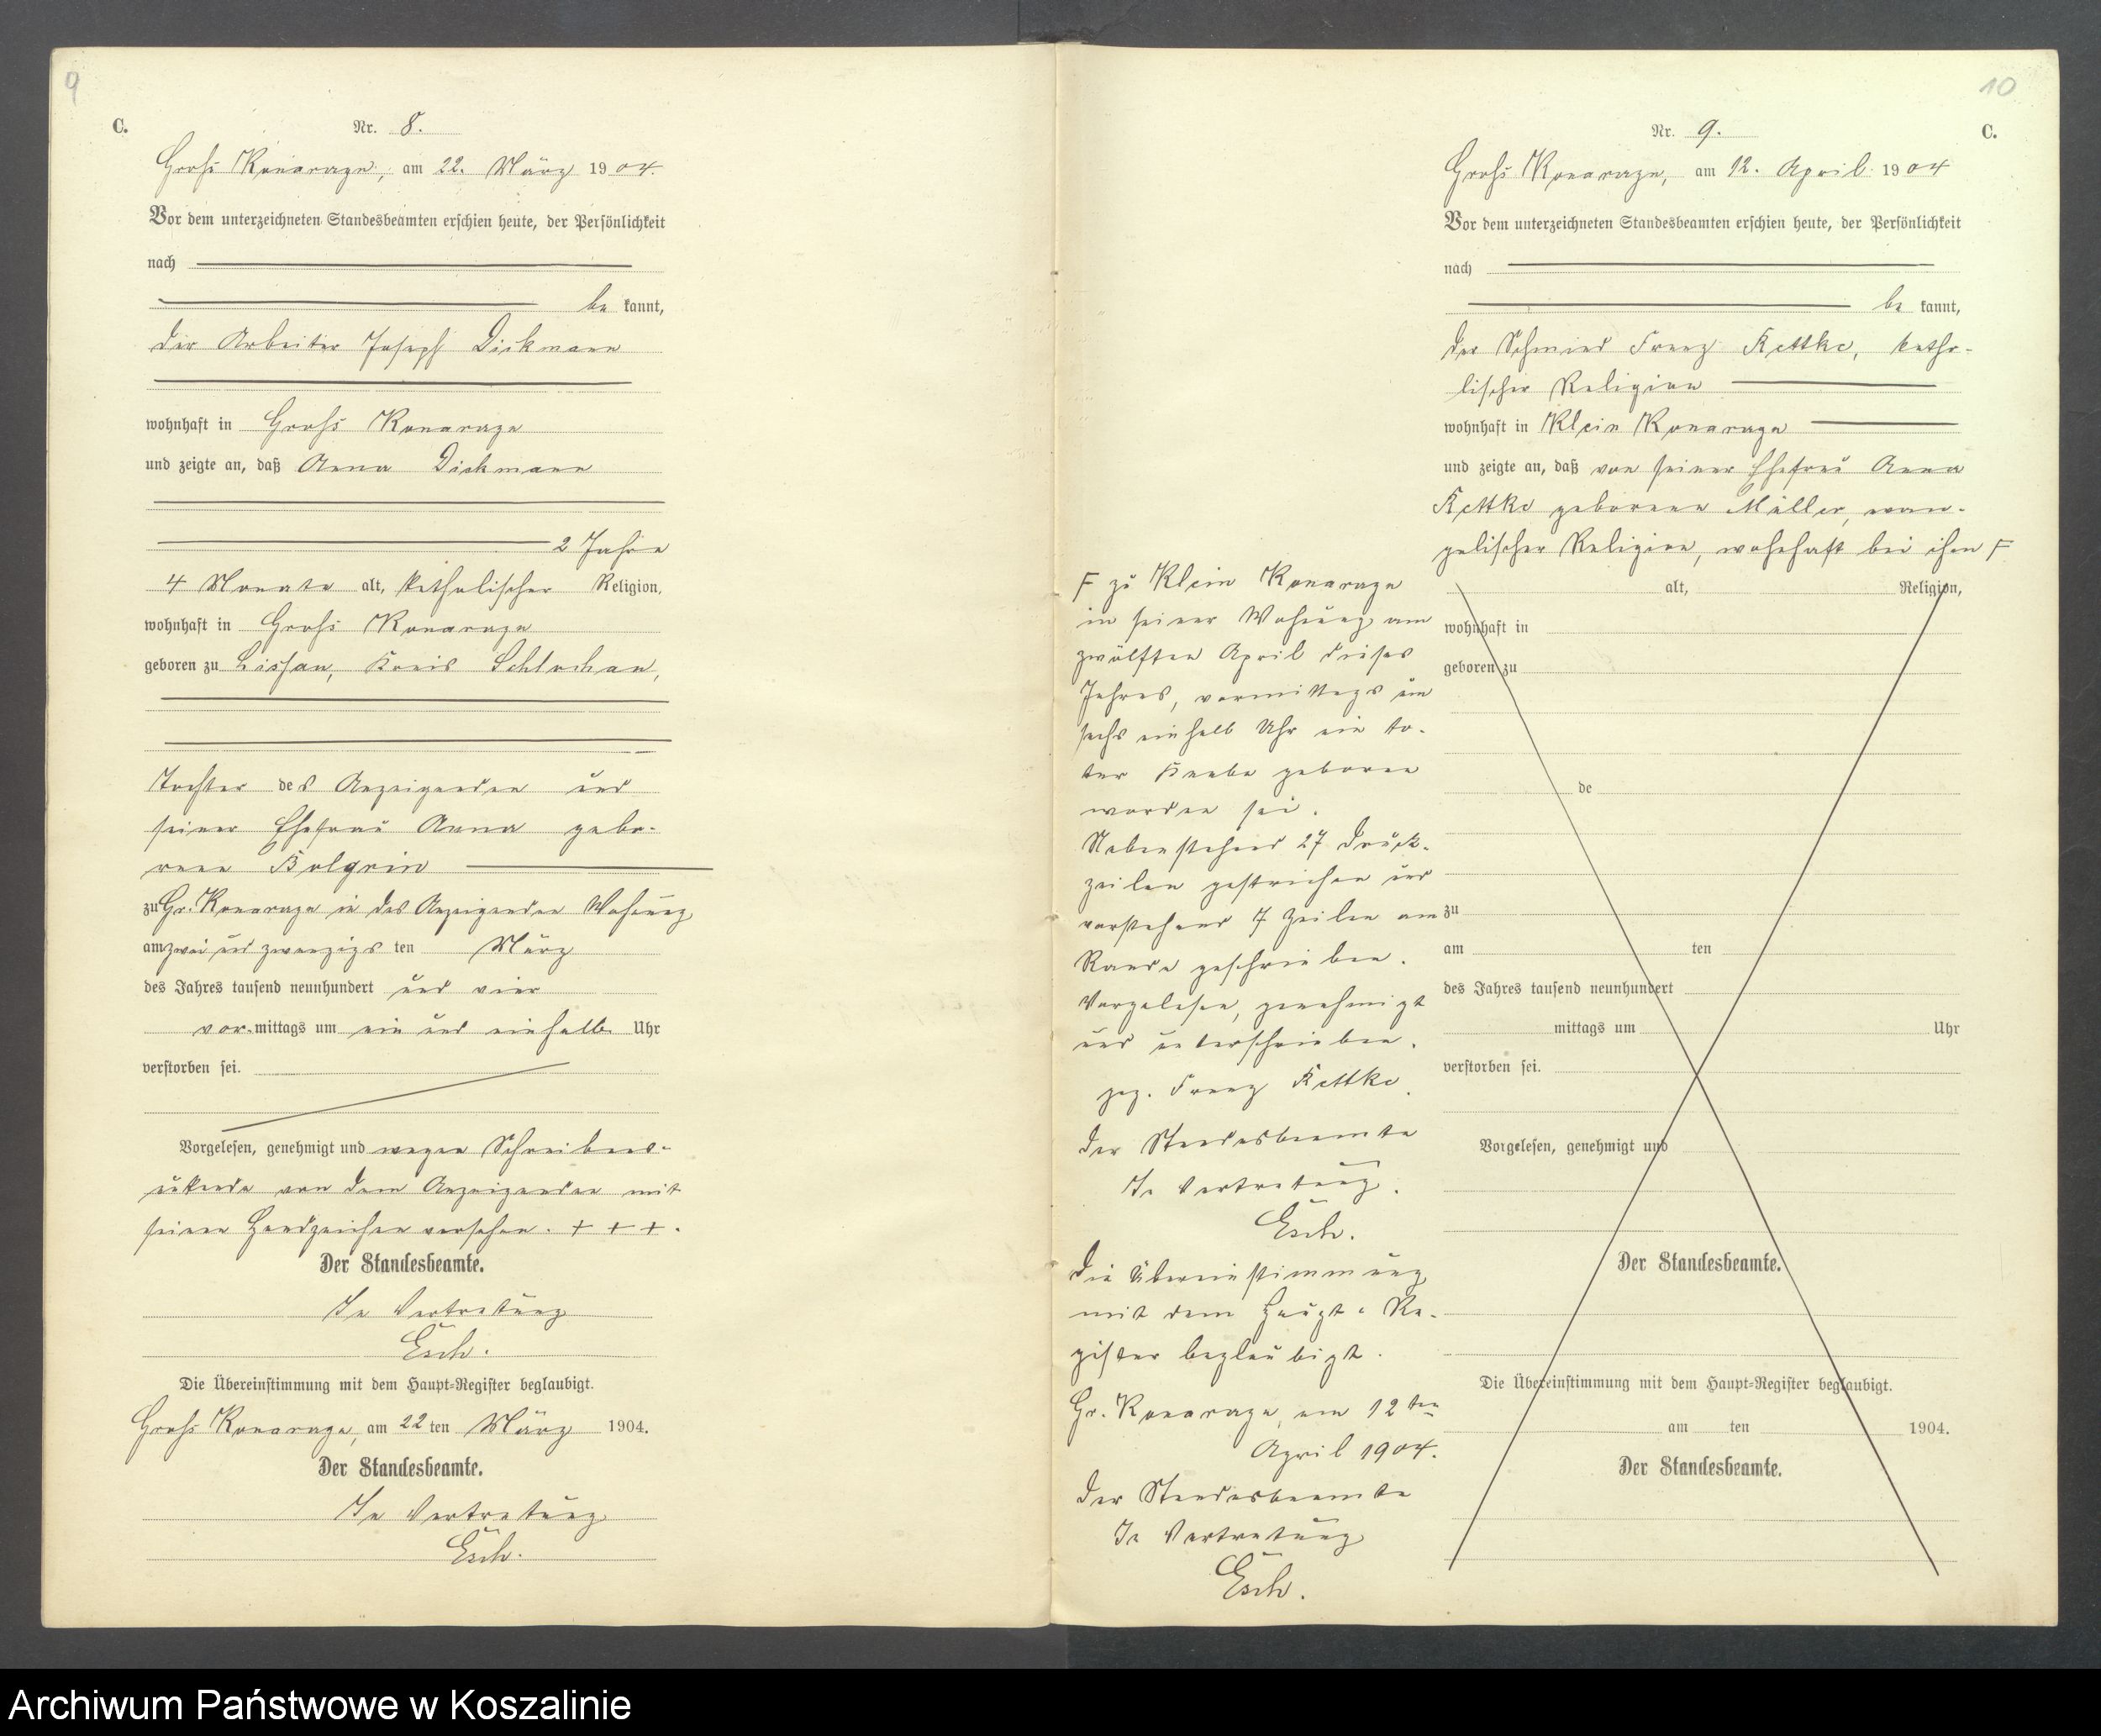 9
C.
Nr. 8.
Groß Konarzyn, am 22. März 1904.
Vor dem unterzeichneten Standesbeamten erschien heute, der Persönlichkeit
nach
be kannt,
der Arbeiter Joseph Dickmann
wohnhaft in Groß Konarzyn
und zeigte an, daß Anna Dickmann
2 Jahre
4 Monate alt, katholischer Religion,
wohnhaft in Groß Konarzyn
geboren zu Lissau, Kreis Schlochau,
Tochter des Anzeigenden und
seiner Ehefrau Anna gebo-
renen
zu Gr. Konarzyn in des Anzeigenden Wohnung
am zwei und zwanzigs ten März
des Jahres tausend neunhundert und vier
vor mittags um ein und einhalb Uhr
verstorben sei.
Vorgelesen, genehmigt und wegen Schreibens-
unkunde von dem Anzeigenden mit
seinen Handzeichen versehen. + + +.
Der Standesbeamte.
In Vertretung
Esch.
Die Übereinstimmung mit dem Haupt-Register beglaubigt.
Groß Konarzyn, am 22 ten März 1904.
Der Standesbeamte.
In Vertretung
Esch.
10
Nr. 9.
C.
Groß Konarzyn, am 12. April 1904
Vor dem unterzeichneten Standesbeamten erschien heute, der Persönlichkeit
nach
be kannt,
der Schmied Franz Kettke, katho-
lischer Religion
wohnhaft in Klein Konarzyn
und zeigte an, daß von seiner Ehefrau Anna
Kettke geborenen Müller, evan-
gelischer Religion, wohnhaft bei ihm F
F zu Klein Konarzyn
in seiner Wohnung am
zwölften April dieses
Jahres, vormittags um
sechs einhalb Uhr ein to-
ter Knabe geboren
worden sei.
Nebenstehend 27 Druck-
zeilen gestrichen und
vorstehend 7 Zeilen am
Rande geschrieben.
Vorgelesen, genehmigt
und unterschrieben.
gez. Franz Kettke.
Der Standesbeamte
In Vertretung.
Esch.
Die Übereinstimmung
mit dem Haupt-Re-
gister beglaubigt.
Gr. Konarzyn, am 12 ten
April 1904.
Der Standesbeamte
In Vertretung
Esch.
alt, Religion,
wohnhaft in
geboren zu
de
zu
am ten
des Jahres tausend neunhundert
mittags um Uhr
verstorben sei.
Vorgelesen, genehmigt und
Der Standesbeamte.
Die Übereinstimmung mit dem Haupt-Register beglaubigt.
am ten 1904.
Der Standesbeamte.
Archiwum Państwowe w Koszalinie